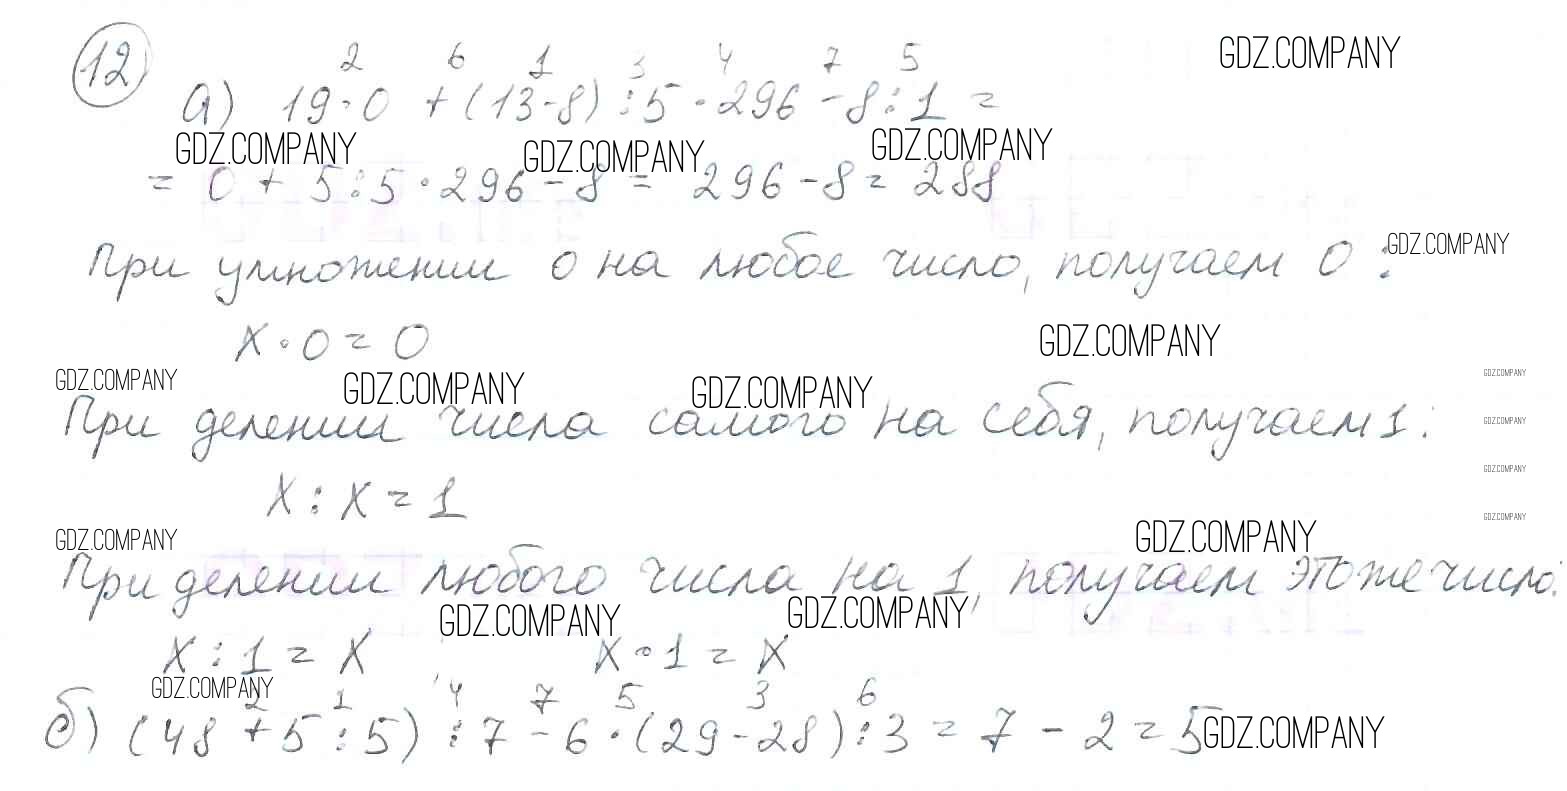 12
2 6 1 3 4 7 5
GDZ.COMPANY
а) 19·0 +(13-8):5·296-8:1=
GDZ.COMPANY GDZ.COMPANY GDZ.COMPANY
= 0 + 5:5·296-8 = 296-8= 288
При умножении 0 на любое число, получаем 0 :
GDZ.COMPANY
x·0=0
GDZ.COMPANY
GDZ.COMPANY GDZ.COMPANY GDZ.COMPANY GDZ.COMPANY
При делении числа самого на себя, получаем 1:
GDZ.COMPANY
GDZ.COMPANY
x : x = 1
GDZ.COMPANY
GDZ.COMPANY GDZ.COMPANY
При делении любого числа на 1, получаем это же число:
GDZ.COMPANY GDZ.COMPANY
x : 1 = x x·1 = x
GDZ.COMPANY
2 1 4 7 5 3 6
б) (48+5:5):7-6·(29-28):3=7-2=5
GDZ.COMPANY